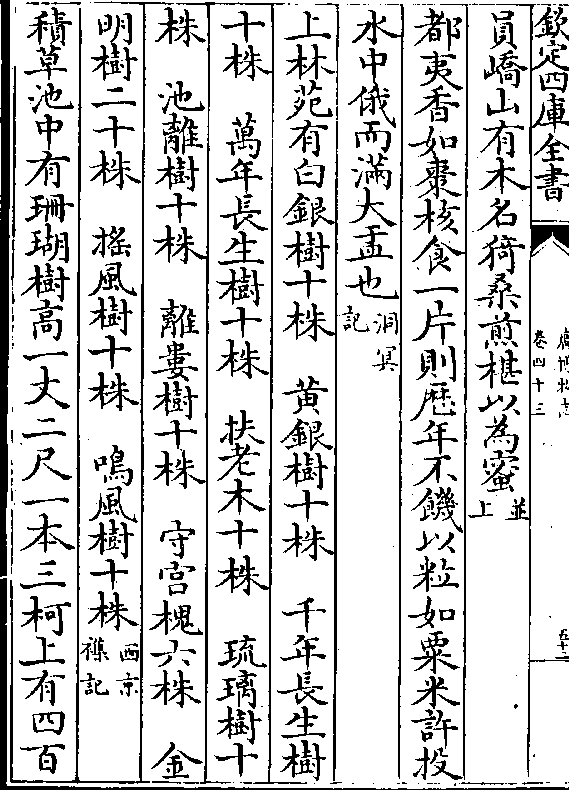 欽定四庫全書
廣博物志
卷四十三
五十二
員嶠山有木名猗桑煎椹以為蜜並上
都夷香如棗核食一片則歷年不饑以粒如粟米許投
水中俄而滿大盂也洞冥記
上林苑有白銀樹十株　黃銀樹十株　千年長生樹
十株　萬年長生樹十株　扶老木十株　琉璃樹十
株　池離樹十株　離婁樹十株　守宮槐六株　金
明樹二十株　搖風樹十株　鳴風樹十株西京襍記
積草池中有珊瑚樹高一丈二尺一本三柯上有四百